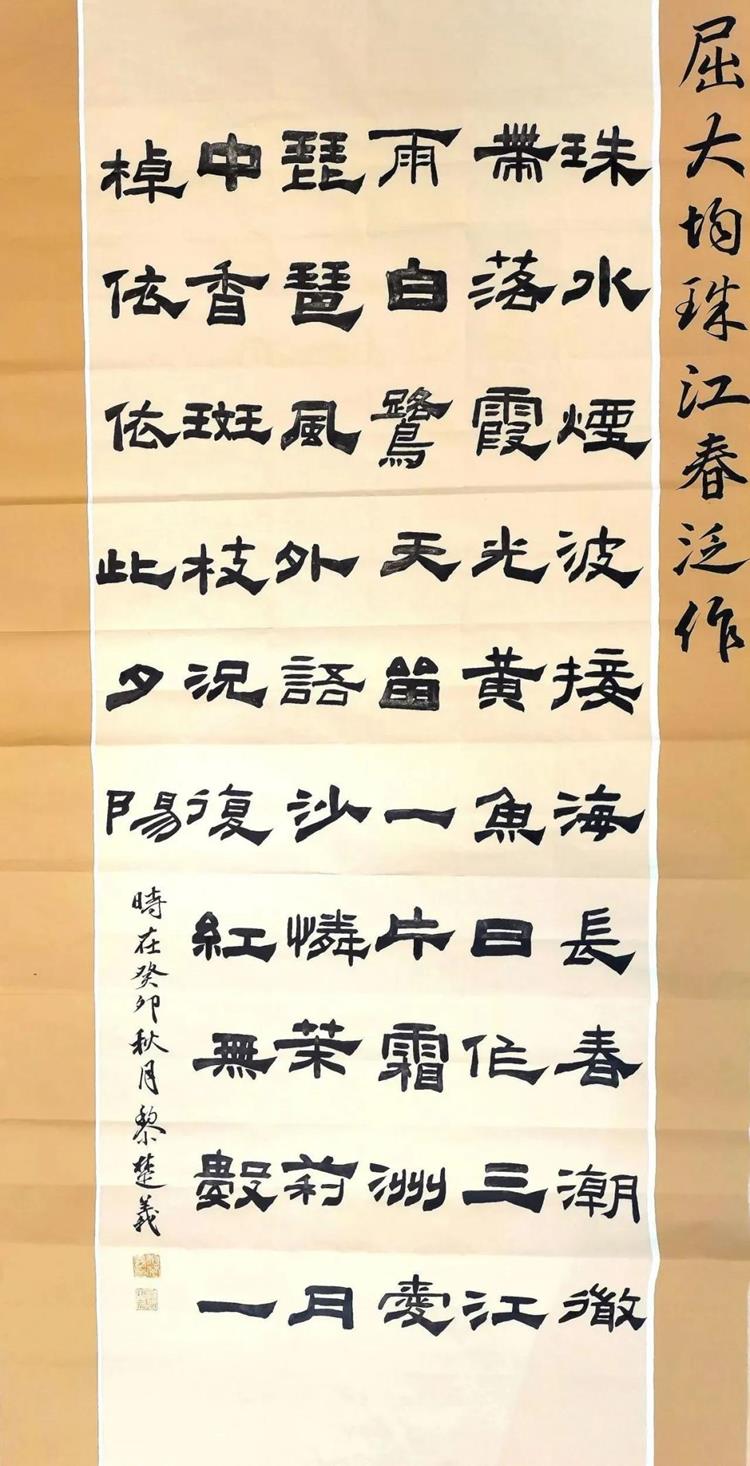 屈大均珠江春泛作
珠水煙波接海長春潮微
帶落霞光黃魚日作三江
雨白鷺天留一片霜洲愛
琵琶風外語沙憐茉莉月
中香斑枝況復紅無數一
棹依依此夕陽
時在癸卯秋月黎楚義